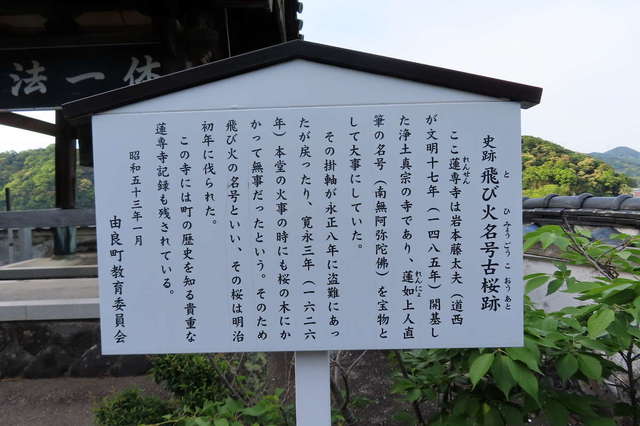 法一体
史跡 飛び火名号古桜跡
と ひみょうごう こ おうあと
ここ蓮専寺は岩本藤太夫（道西
れんせん
が文明十七年（一四八五年）開基し
た浄土真宗の寺であり、蓮如上人直
れんにょ
筆の名号（南無阿弥陀佛）を宝物と
して大事にしていた。
その掛軸が永正八年に盗難にあっ
たが戻ったり、寛永三年（一六二六
年）本堂の火事の時にも桜の木にか
かって無事だったという。そのため
飛び火の名号といい、その桜は明治
初年に伐られた。
この寺には町の歴史を知る貴重な
蓮専寺記録も残されている。
昭和五十三年一月
由良町教育委員会